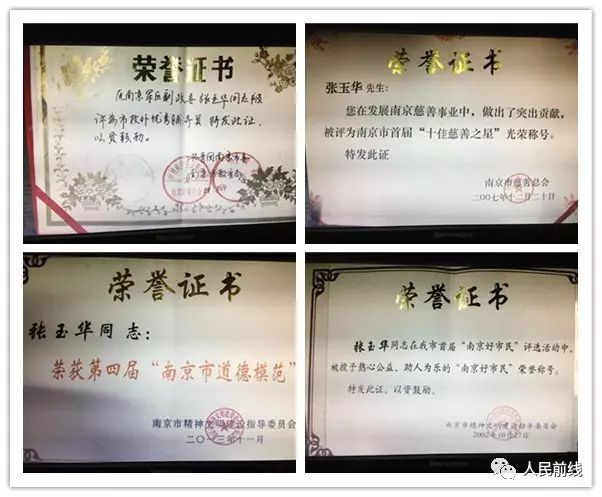 荣誉证书
原南京军区副政委张玉华同志被
评为市校外优秀辅导员 特发此证
以资鼓励
共青团南京市委
南京市教育局
荣誉证书
张玉华先生：
您在发展南京慈善事业中，做出了突出贡献，
被评为南京市首届“十佳慈善之星”光荣称号。
特发此证
南京市慈善总会
二00七年十二月二十日
荣誉证书
张玉华同志：
荣获第四届“南京市道德模范”
南京市精神文明建设指导委员会
二〇一三年十一月
荣誉证书
张玉华同志在我市首届“南京好市民”评选活动中，
被授予热心公益、助人为乐的“南京好市民”荣誉称号。
特发此证，以资鼓励。
南京市精神文明建设指导委员会
2002年10月27日
人民前线